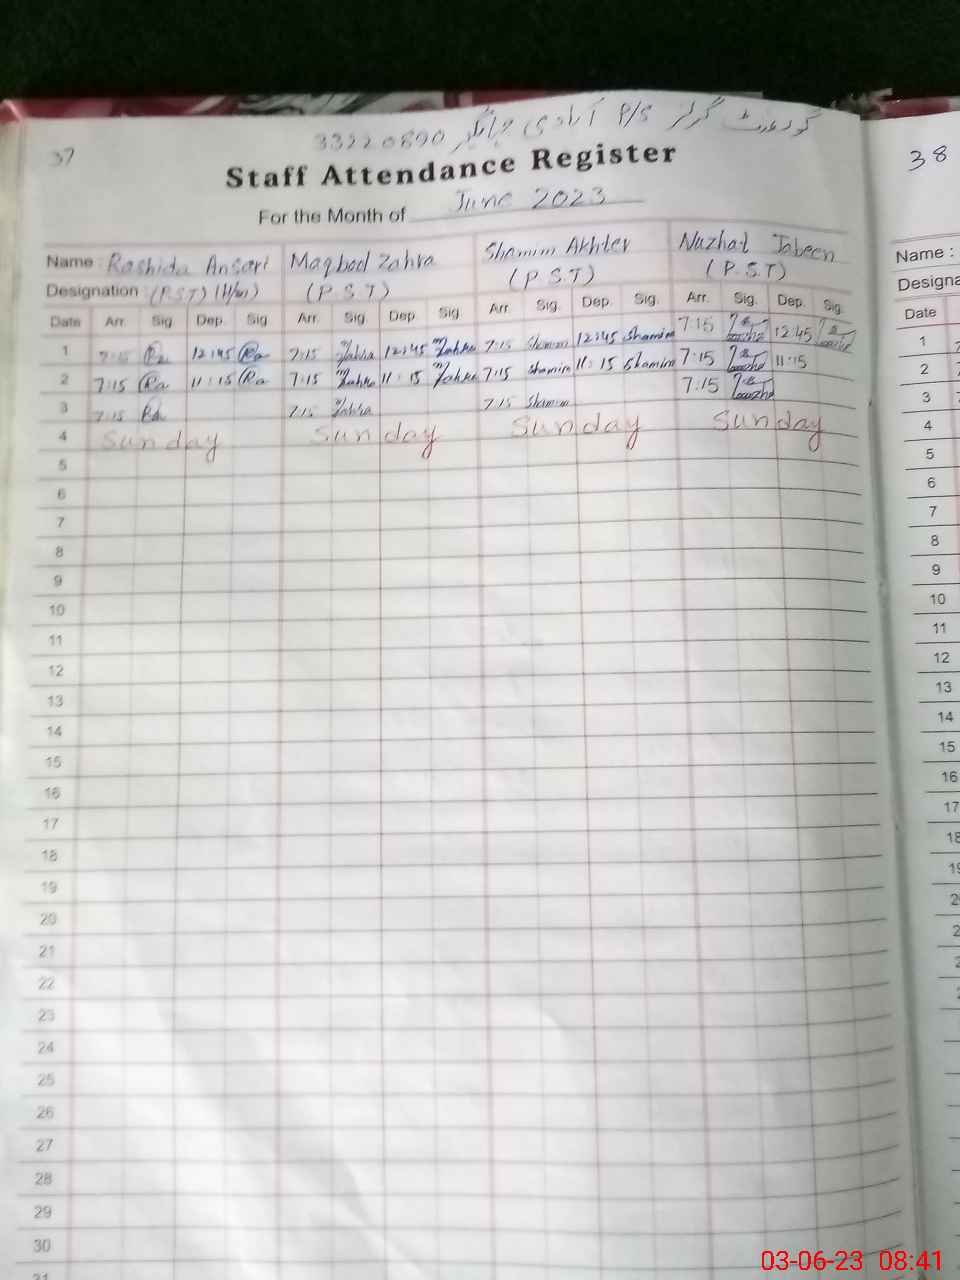 گورنمنٹ گرلز P/S آبادی جہانگیر 33220890
37
Staff Attendance Register
For the Month of June 2023
Name : Rashida Ansari Maqbool Zahra Shamim Akhter Nuzhat Jabeen
Designation : (P.S.T) (P.S.T) (P.S.T) (P.S.T)
Date Arr. Sig Dep. Sig Arr. Sig. Dep Sig. Arr. Sig. Dep. Sig. Arr. Sig. Dep. Sig.
1 7:15 Ra 12:45 Ra 7:15 Zahra 12:45 Zahra 7:15 Shamim 12:45 Shamim 7:15 12:45
2 7:15 Ra 11:15 Ra 7:15 Zahra 11:15 Zahra 7:15 Shamim 11:15 Shamim 7:15 11:15
3 7:15 Ra 7:15 Zahra 7:15 Shamim 7:15
4 Sunday Sunday Sunday Sunday
5
6
7
8
9
10
11
12
13
14
15
16
17
18
19
20
21
22
23
24
25
26
27
28
29
30
31
38
Name :
Designa
Date
1
2
3
4
5
6
7
8
9
10
11
12
13
14
15
16
17
18
03-06-23 08:41